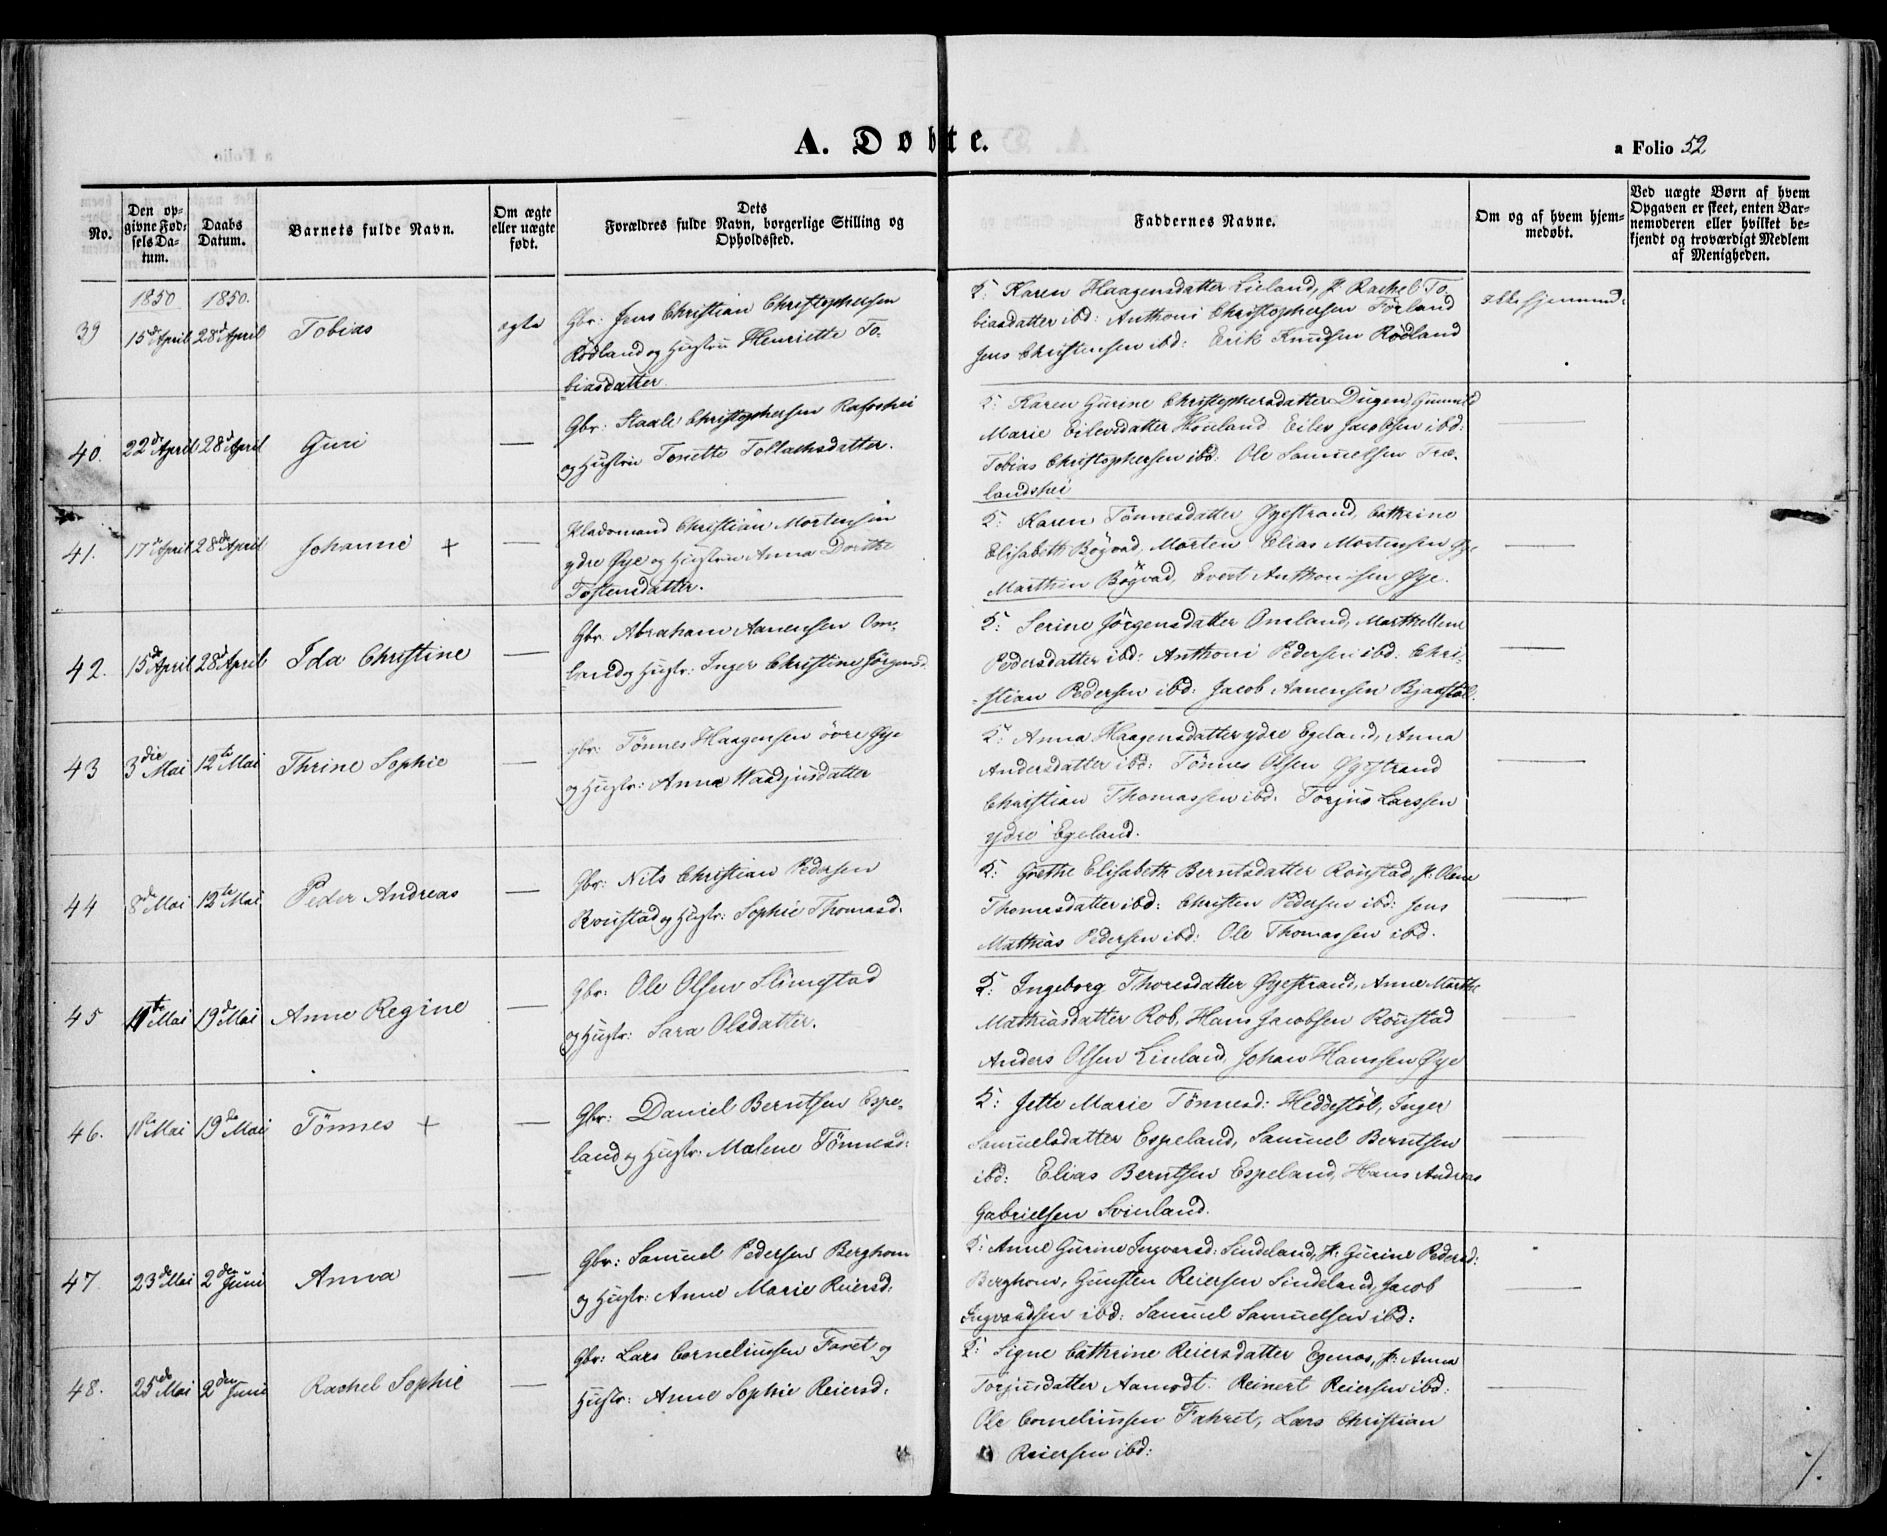 A. Døbte.
a Folio 52
No.
Den opgivne Fødsels Datum.
Daabs Datum.
Barnets fulde Navn.
Om ægte eller uægte født.
Dets Forældres fulde Navn, borgerlige Stilling og Opholdssted.
Faddernes Navne.
Om og af hvem hjemmedøbt.
Ved uægte Børn af hvem Opgaven er skeet, enten Barnemoderen eller hvilket bekjendt og troværdigt Medlem af Menigheden.
1850 1850.
39 15de April 28d April Tobias ægte
Gbr: Jens Christian Christophersen
Rødland og Hustru Henriette To-
biasdatter.
Karen Haagensdatter Lieland, P. Rachel To-
biasdatter ibd: Anthoni Christophersen Förland
Jens Christensen ibd: Erik Knudsen Rödland
ikke hjemmed:
40. 22de April 28d April Guri —
Gbr: Staale Christophersen
og Hustru Tonette Tollachsdatter.
Karen Gurine Christophersdatter Dugen,
Marie Eilevsdatter Houland Eilev Jacobsen ibd:
Tobias Christophersen ibd: Ole Samuelsen Træ-
landshei
—
41. 17de April 28de April Johanne + —
Christian Mortensen
ydre Øye og Hustru Anna Dorthe
Tostensdatter.
Karen Tönnesdatter Øyestrand, Cathrine
Elisabeth Bögvad, Morten Elias Mortensen Øye
Marthin Bögvad, Evert Anthonisen Øye.
—
42. 15de April 28d April Ida Christine —
Gbr. Abraham Aanensen Om-
land og Hustr: Inger Christine Jörgensd.
Serine Jörgensdatter Omland, Marthe
Pedersdatter ibd: Anthoni Pedersen ibd. Chri-
stian Pedersen ibd: Jacob Aanensen
—
43 3die Mai 12te Mai Thrine Sophie —
gbr: Tönnes Haagensen övre Øye
og Hustr: Anna
Anna Haagensdatter ydre Egeland, Anna
Andersdatter ibd: Tönnes Olsen Øyestrand
Christian Thomassen ibd. Torjus Larssen
ydre Egeland.
—
44 8de Mai 12te Mai Peder Andreas —
Gbr: Nils Christian Pedersen
Roustad og Hustr: Sophie Thomasd.
Grethe Elisabeth Berntsdatter Roustad, P: Olene
Thomasdatter ibd: Christen Pedersen ibd: Jens
Mathias Pedersen ibd: Ole Thomassen ibd.
—
45 11te Mai 19de Mai Anne Regine —
Gbr: Ole Olsen Slimestad
og Hustr: Sara Olsdatter.
Ingeborg Thoresdatter Øyestrand, Anne Marthe
Mathiasdatter Rob, Hans Jacobsen Roustad
Anders Olsen Linland, Johan Hanssen Øye
—
46. 11te Mai 19de Mai Tönnes + —
Gbr: Daniel Berntsen Espe-
land og Hustr. Malene Tönnesd:
Jette Marie Tönnesd: Heddestöl, Inger
Samuelsdatter Espeland, Samuel Berntsen
ibd: Elias Berntsen Espeland, Hans Andreas
Gabrielsen Svinland.
—
47. 23de Mai 2den Juni Anna —
Gbr: Samuel Pedersen Berghom
og Hustr: Anne Marie Reiersd:
Anne Gurine Ingvarsd: Sindeland, P: Gurine Pedersd:
Berghom, Gunsten Reiersen Sindeland, Jacob
ibd: Samuel Samuelsen ibd:
—
48. 25de Mai 2den Juni Rachel Sophie —
Gbr: Lars Corneliussen Faret og
Hustr: Anne Sophie Reiersd.
Signe Cathrine Reiersdatter Egenæs, P: Anna
Torjusdatter Aamodt. Reinert Reiersen ibd:
Ole Corneliussen Fahret, Lars Christian
Reiersen ibd:
—